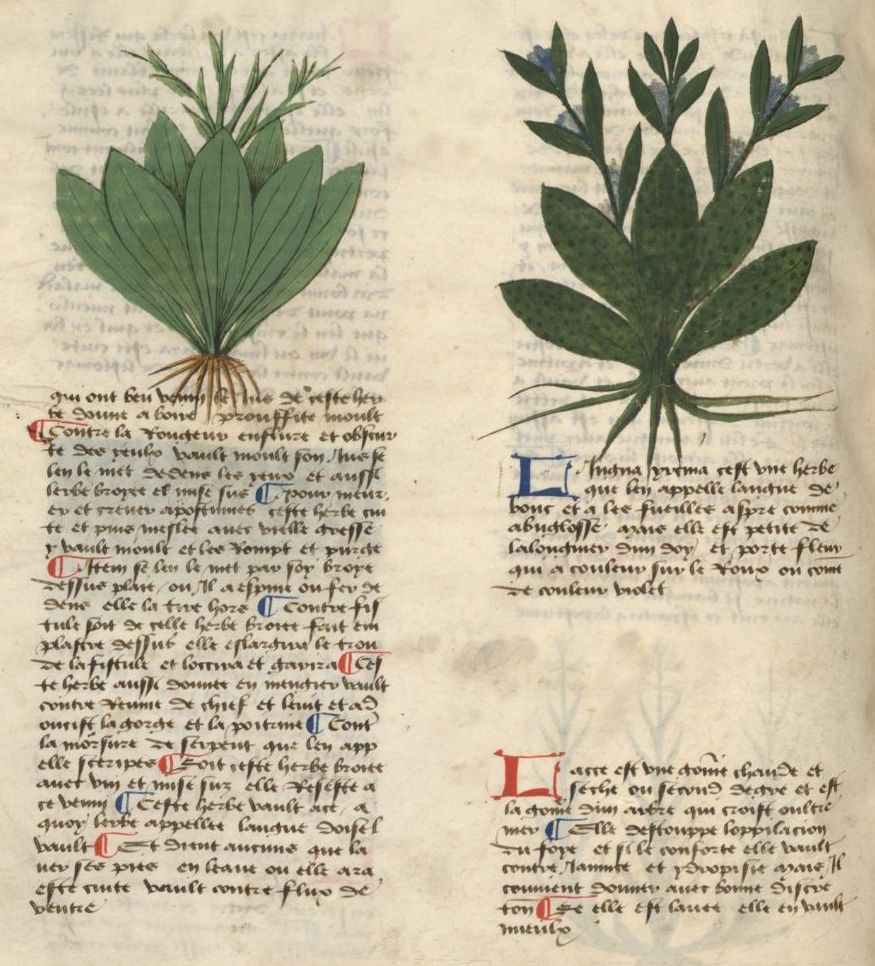 qui ont beu venin le jus de ceste her
be donne a boire prouffite moult
Contre la Rougeur enfleure et obscur
te des yeulx vault moult son jus se
len le met dedens les yeux et aussi
lerbe broyee et mise sus pour meur
er et crever apostumes ceste herbe cui
te et puis meslee avec vielle gresse
y vault moult et les Rompt et purge
Item se len le met par soy broye
dessus plaie ou il a espine ou fer de
dens elle la tire hors Contre fis
tule soit de celle herbe broiee fait em
plastre dessus elle eslargira le trou
de la fistule et loccira et garira Ces
te herbe aussi donnee en mengier vault
contre Reume de chief et leuit et ad
oucist la gorge et la poitrine Cont
la morsure de serpent que len app
elle Soit ceste herbe broiee
avec vin et mise sur elle Resiste a
ce venin Ceste herbe vault a ce a
quoy lerbe appellee langue doisel
vault Et dient aucuns que la
ver ses pies en leaue ou elle ara
este cuite vault contre flux de
ventre
Lingua yrcina cest une herbe
que len appelle langue de
bouc et a les fueilles aspre comme
abuglosse mais elle est petite de
la longueur dun doy et porte fleur
qui a couleur sur le Roux ou come
de couleur violet
Lacce est une gome chaude et
seche ou second degre et est
la gome dun arbre qui croist oultre
mer Elle destouppe lopilacion
du foye et si le conforte elle vault
contre Jaunice et ydropisie mais il
convient donner avec bonne discre
ton Se elle est lavee elle en vault
mieulx